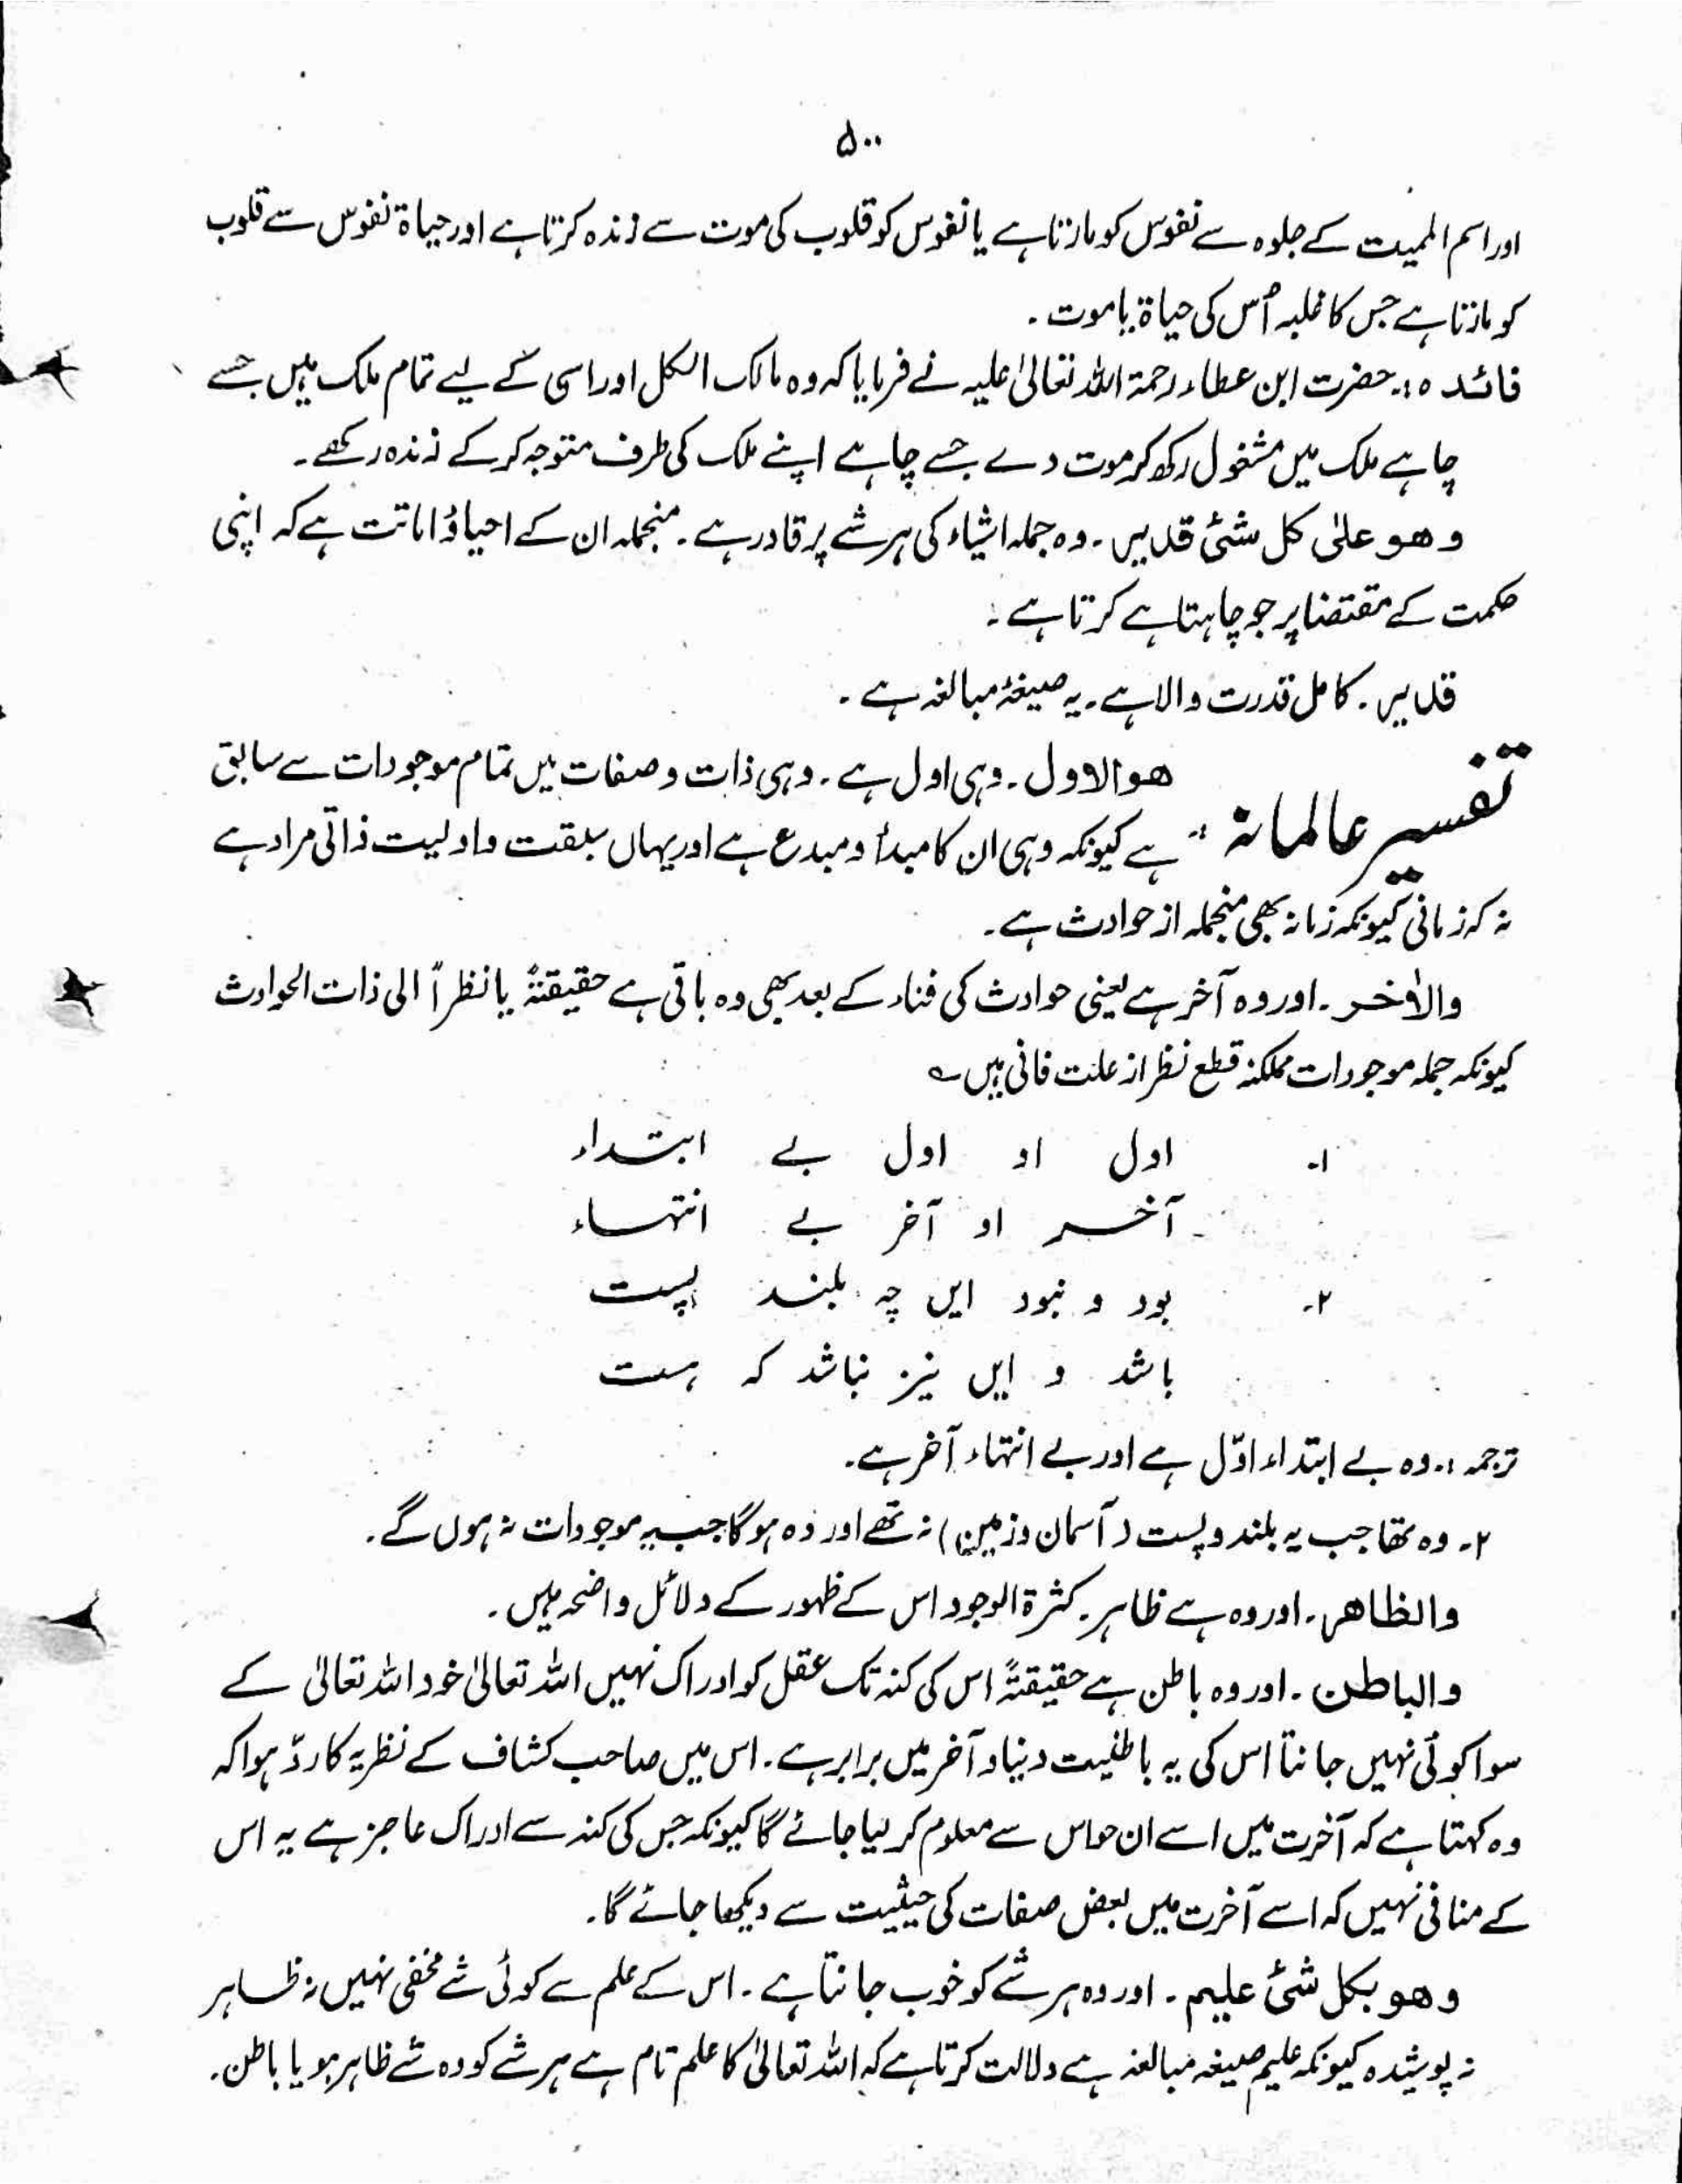 ۵۰۰
اور اسم الممیت کے جلوہ سے نفوس کو مارتا ہے یا نفوس کو قلوب کی موت سے زندہ کرتا ہے اور حیاۃ نفوس سے قلوب
کو مارتا ہے جس کا غلبہ اُس کی حیاۃ یا موت ۔
فائدہ :۔ حضرت ابن عطاء رحمۃ اللہ تعالیٰ علیہ نے فرمایا کہ وہ مالک الکل اور اسی کے لیے تمام ملک ہیں جسے
چاہے ملک میں مشغول رکھ کر موت دے جسے چاہے اپنے ملک کی طرف متوجہ کر کے زندہ رکھے ۔
وھو علیٰ کل شئ قدیر ۔ وہ جملہ اشیاء کی ہر شے پر قادر ہے ۔ منجملہ ان کے احیاؤ اماتت ہے کہ اپنی
حکمت کے مقتضا پر جو چاہتا ہے کرتا ہے ۔
قدیر ۔ کامل قدرت والا ہے ۔ یہ صیغۂ مبالغہ ہے ۔
تفسیر عالمانہ :۔ ھو الاول ۔ وہی اول ہے ۔ وہی ذات و صفات میں تمام موجودات سے سابق
ہے کیونکہ وہی ان کا مبدأ و مبدع ہے اور یہاں سبقت و اولیت ذاتی مراد ہے
نہ کہ زمانی کیونکہ زمانہ بھی منجملہ از حوادث ہے ۔
والاٰخر ۔ اور وہ آخر ہے یعنی حوادث کی فناء کے بعد بھی وہ باقی ہے حقیقتہً یا نظراً الی ذات الحوادث
کیونکہ جملہ موجودات ممکنہ قطع نظر از علت فانی ہیں ؎
۱۔ اول او اول بے ابتداء
آخر او آخر بے انتہاء
۲۔ بود و نبود ایں چہ بلند پست
باشد و ایں نیز نباشد کہ ہست
ترجمہ ۱۔ وہ بے ابتداء اوّل ہے اور بے انتہاء آخر ہے ۔
۲۔ وہ تھا جب یہ بلند و پست ( آسمان و زمین ) نہ تھے اور وہ ہوگا جب یہ موجودات نہ ہوں گے ۔
والظاھر ۔ اور وہ ہے ظاہر ۔ کثرۃ الوجود اس کے ظہور کے دلائل واضحہ ہیں ۔
والباطن ۔ اور وہ باطن ہے حقیقتہً اس کی کنہ تک عقل کو ادراک نہیں اللہ تعالیٰ خود اللہ تعالیٰ کے
سوا کوئی نہیں جانتا اس کی یہ باطنیت دنیا و آخر میں برابر ہے ۔ اس میں صاحب کشاف کے نظریہ کا ردّ ہوا کہ
وہ کہتا ہے کہ آخرت میں اسے ان حواس سے معلوم کر لیا جائے گا کیونکہ جس کی کنہ سے ادراک عاجز ہے یہ اس
کے منافی نہیں کہ اسے آخرت میں بعض صفات کی حیثیت سے دیکھا جائے گا ۔
وھو بکل شئ علیم ۔ اور وہ ہر شے کو خوب جانتا ہے ۔ اس کے علم سے کوئی شے مخفی نہیں نہ ظاہر
نہ پوشیدہ کیونکہ علیم صیغہ مبالغہ ہے دلالت کرتا ہے کہ اللہ تعالیٰ کا علم تام ہے ہر شے کو وہ شے ظاہر ہو یا باطن ۔